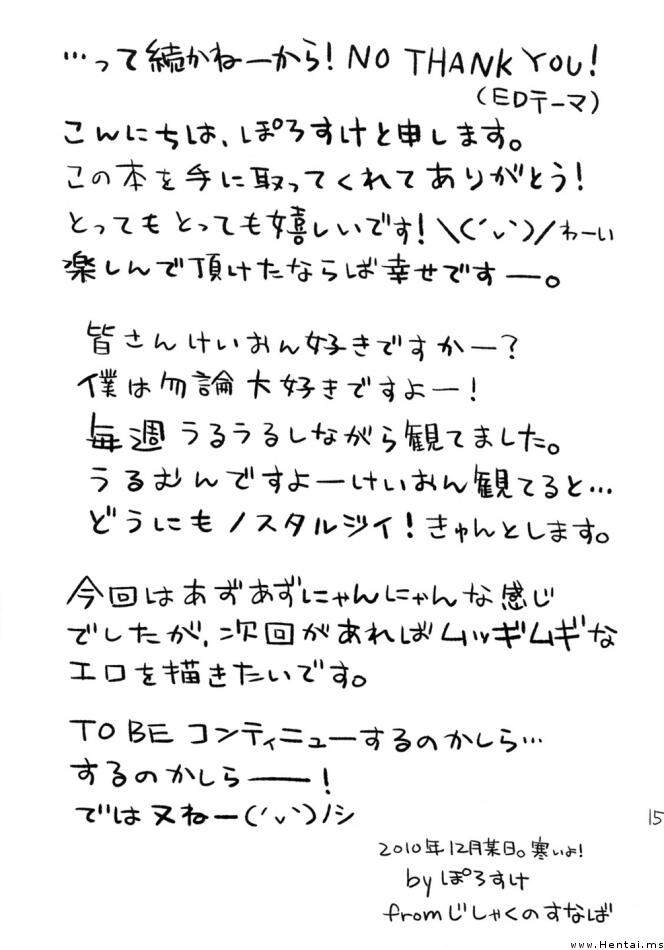 …って続かねーから! NO THANK YOU!
(EDテーマ)
こんにちは、ぽろすけと申します。
この本を手に取ってくれてありがとう!
とってもとっても嬉しいです!\(´ヽ`)/わーい
楽しんで頂けたならば幸せですー。
皆さんけいおん好きですかー?
僕は勿論大好きですよー!
毎週うるうるしながら観てました。
うるむんですよーけいおん観てると…
どうにもノスタルジイ!きゅんとします。
今回はあずあずにゃんにゃんな感じ
でしたが、次回があればムッギムギな
エロを描きたいです。
TO BE コンティニューするのかしら…
するのかしら――!
では又ねー(´ヽ`)ノシ
15
2010年12月某日。寒いよ!
by ぽろすけ
fromじしゃくのすなば
www.Hentai.ms